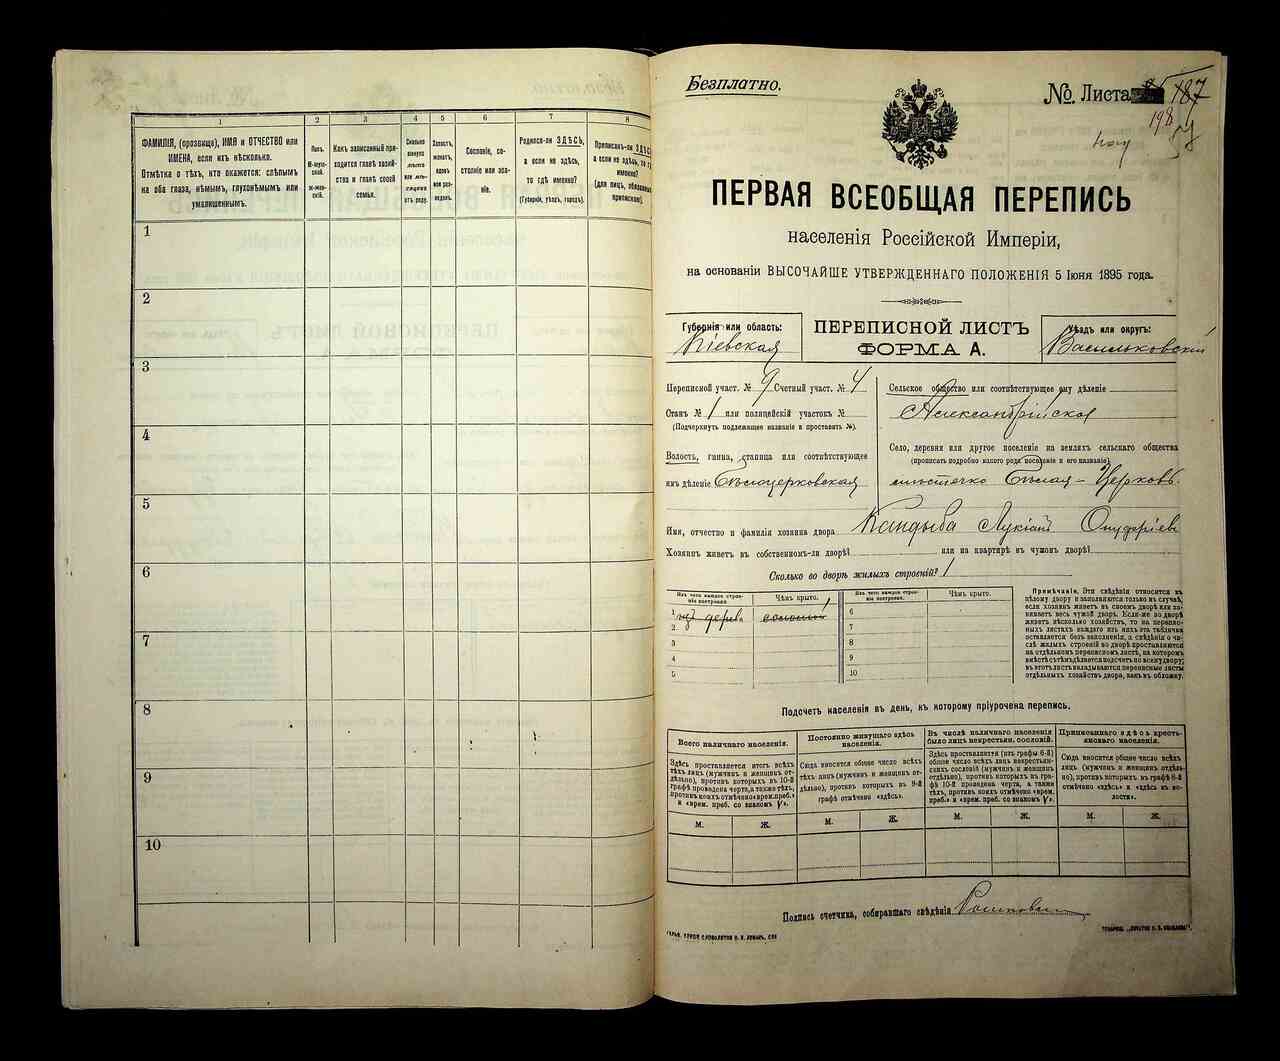 1
2
3
4
5
6
7
8
ФАМИЛІЯ, (прозвище), ИМЯ и ОТЧЕСТВО или
ИМЕНА, если ихъ нѣсколько.
Отмѣтка о тѣхъ, кто окажется: слѣпымъ
на оба глаза, нѣмымъ, глухонѣмымъ или
умалишеннымъ.
Полъ.
М-мужской.
Ж-женскій.
Какъ записанный при-
ходится главѣ хозяй-
ства и главѣ своей
семьи.
Сколько
минуло
лѣтъ
или мѣ-
сяцевъ
отъ роду.
Сословіе, со-
стояніе или зва-
ніе.
Родился-ли ЗДѢСЬ,
а если не здѣсь,
то гдѣ именно?
(Губернія, уѣздъ, городъ).
Приписанъ-ли ЗДѢСЬ,
а если не здѣсь, то гдѣ
именно?
(для лицъ, обязанныхъ
припискою).
1
2
3
4
5
6
7
8
9
10
Безплатно.
№ Листа 187
198
ПЕРВАЯ ВСЕОБЩАЯ ПЕРЕПИСЬ
населенія Россійской Имперіи,
на основаніи ВЫСОЧАЙШЕ УТВЕРЖДЕННАГО ПОЛОЖЕНІЯ 5 Іюня 1895 года.
Губернія или область:
Кіевская
ПЕРЕПИСНОЙ ЛИСТЪ
ФОРМА А.
Уѣздъ или округъ:
Васильковскій
Переписной участ. № 9 Счетный участ. № 4
Станъ № 1 или полицейскій участокъ №
(Подчеркнуть подлежащее названіе и проставить №).
Волость, гмина, станица или соотвѣтствующее
имъ дѣленіе Бѣлоцерковская
Сельское общество или соотвѣтствующее ему дѣленіе
Александрійское
Село, деревня или другое поселеніе на земляхъ сельскаго общества
(прописать подробно какого рода поселеніе и его названіе)
мѣстечко Бѣлая-Церковь.
Имя, отчество и фамилія хозяина двора Кандыба Лукіанъ
Хозяинъ живетъ въ собственномъ-ли дворѣ? или на квартирѣ въ чужомъ дворѣ?
Сколько во дворѣ жилыхъ строеній? 1
Изъ чего каждое строе-
ніе построено.
Чѣмъ крыто.
Изъ чего каждое строе-
ніе построено.
Чѣмъ крыто.
1 изъ дерева соломой
2
3
4
5
6
7
8
9
10
Примѣчаніе. Эти свѣдѣнія относятся къ
цѣлому двору и заполняются только въ случаѣ,
если хозяинъ живетъ въ своемъ дворѣ или за-
нимаетъ весь чужой дворъ. Если-же во дворѣ
живетъ нѣсколько хозяйствъ, то на перепис-
ныхъ листахъ каждаго изъ нихъ эта табличка
оставляется безъ заполненія, а свѣдѣнія о чи-
слѣ жилыхъ строеній во дворѣ проставляются
на отдѣльномъ переписномъ листѣ, на которомъ
вмѣстѣ съ тѣмъ дѣлается подсчетъ по всему двору;
въ этотъ листъ вкладываются переписные листы
отдѣльныхъ хозяйствъ двора, какъ въ обложку.
Подсчетъ населенія въ день, къ которому пріурочена перепись.
Всего наличнаго населенія.
Здѣсь проставляется итогъ всѣхъ
тѣхъ лицъ (мужчинъ и женщинъ от-
дѣльно), противъ которыхъ въ 10-й
графѣ проведена черта, а также тѣхъ,
противъ коихъ отмѣчено «врем. преб.»
и «врем. преб. со знакомъ V».
Постоянно живущаго здѣсь
населенія.
Сюда вносится общее число всѣхъ
тѣхъ лицъ (мужчинъ и женщинъ от-
дѣльно), противъ которыхъ въ 9-й
графѣ отмѣчено «здѣсь».
Въ числѣ наличнаго населенія
было лицъ некрестьян. сословій.
Здѣсь проставляется (изъ графы 6-й)
общее число всѣхъ лицъ некрестьян-
скихъ сословій (мужчинъ и женщинъ
отдѣльно), противъ которыхъ въ гра-
фѣ 10-й проведена черта, а также
тѣхъ, противъ коихъ отмѣчено «врем.
преб.» и «врем. преб. со знакомъ V».
Приписаннаго здѣсь кресть-
янскаго населенія.
Сюда вносится общее число всѣхъ
лицъ (мужчинъ и женщинъ отдѣль-
но), противъ которыхъ въ графѣ 8-й
отмѣчено «здѣсь» и «здѣсь въ во-
лости».
М. Ж. М. Ж. М. Ж. М. Ж.
Подпись счетчика, собиравшаго свѣдѣнія